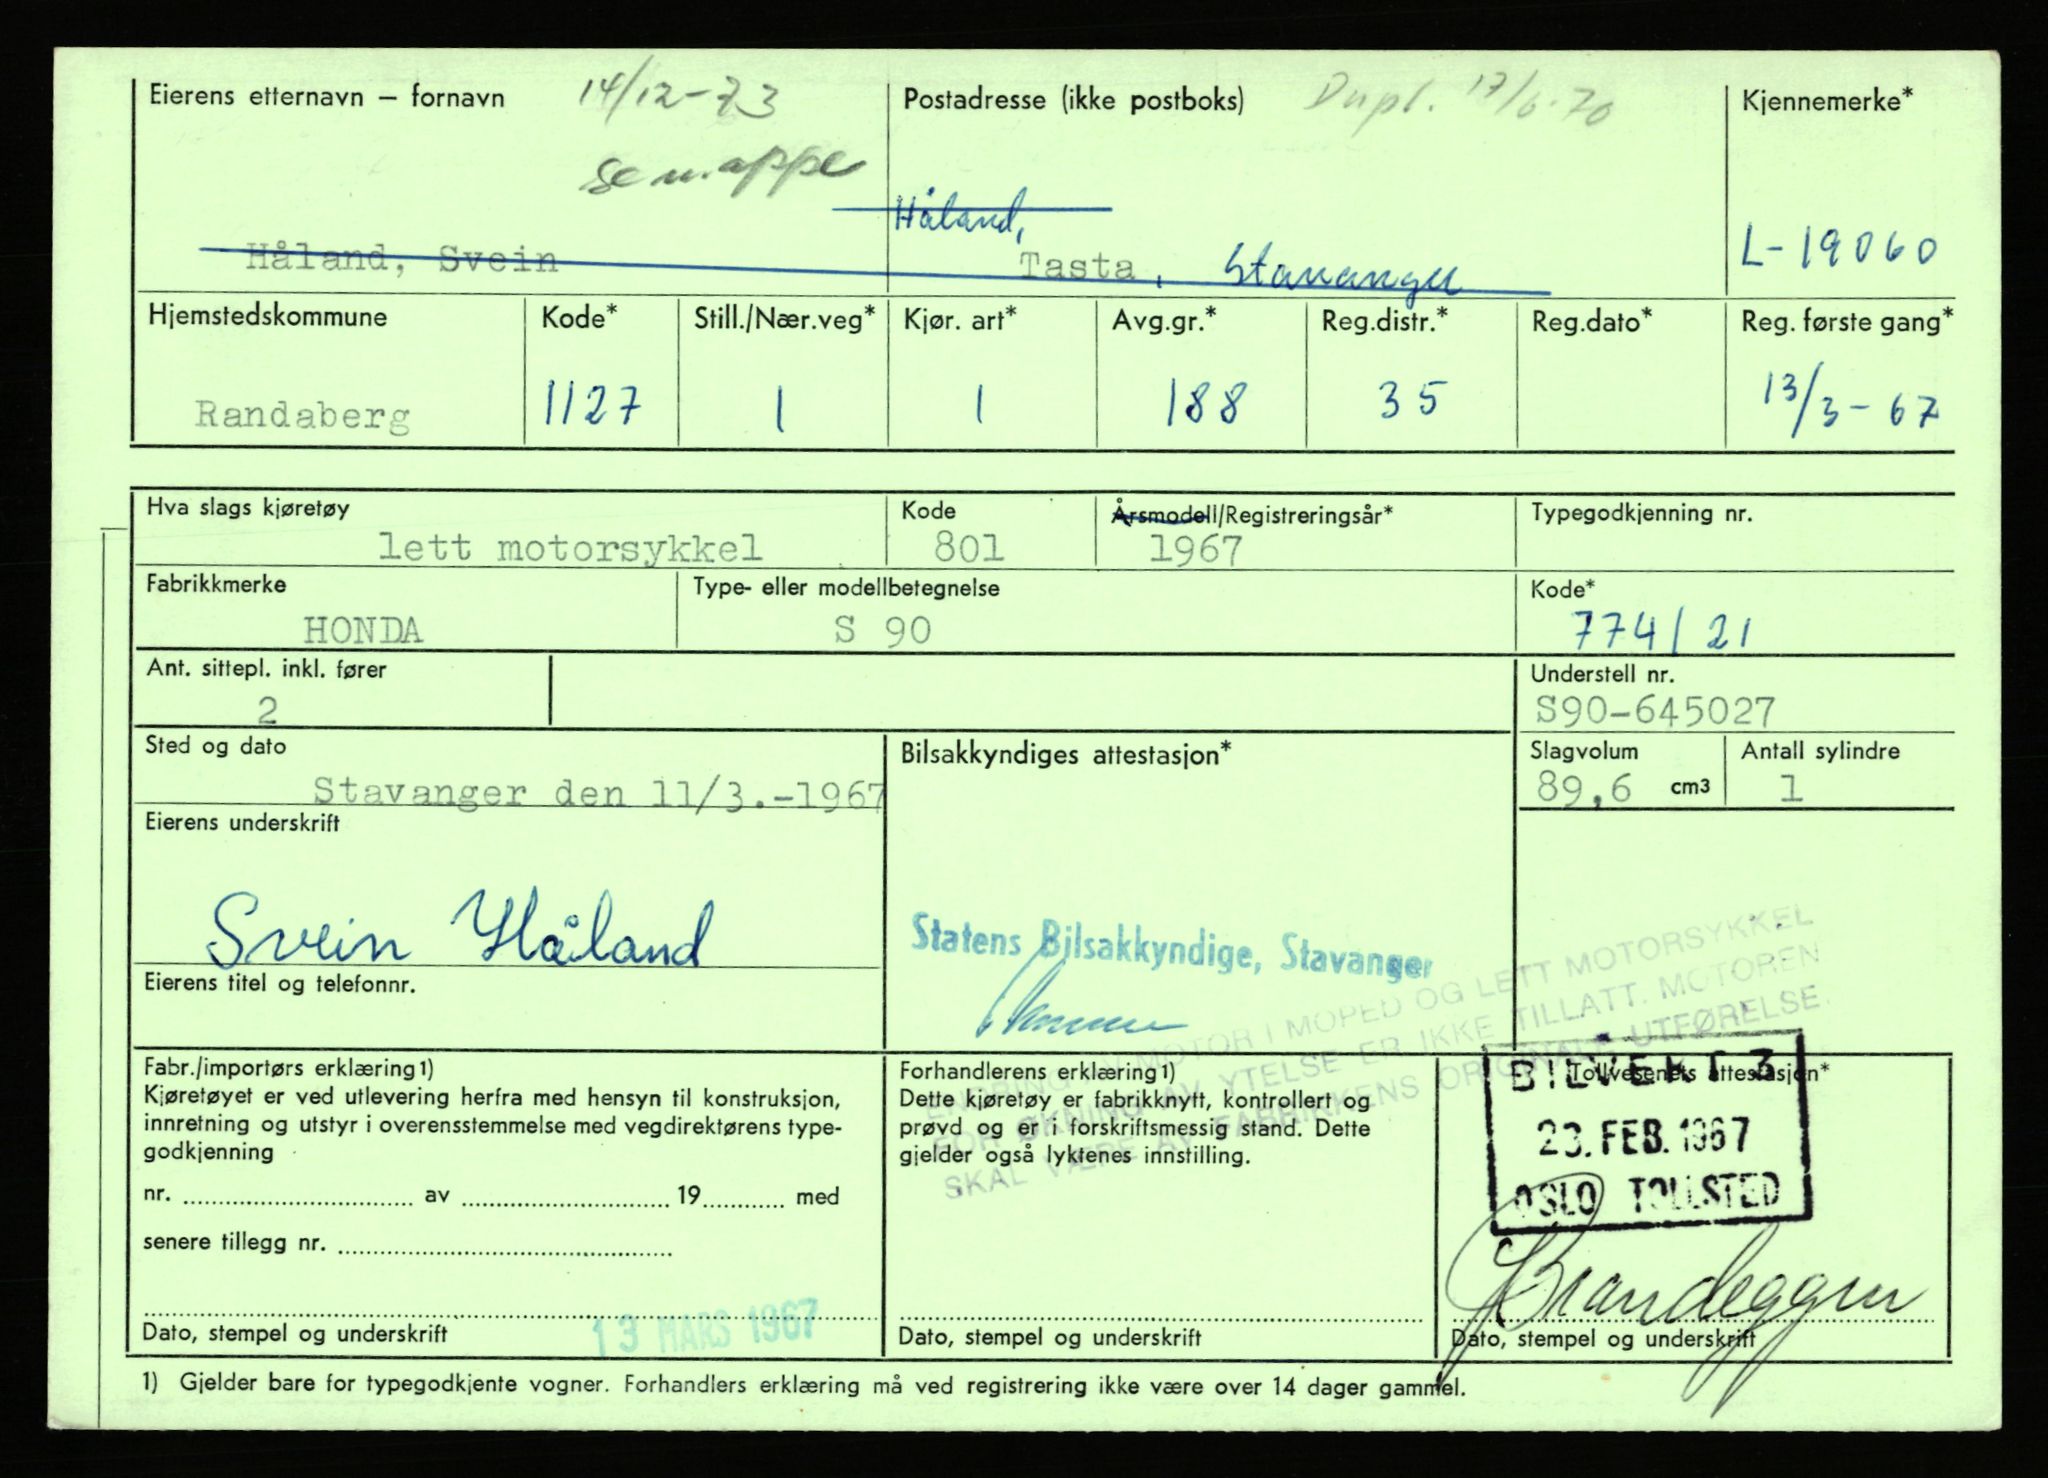 Eierens etternavn – fornavn 14/12-73 Postadresse (ikke postboks) Dupl. 17/6-70 Kjennemerke*
se m.appe
Håland,
Håland, Svein Tasta, Stavanger L-19060
Hjemstedskommune Kode* Still./Nær.veg* Kjør. art* Avg.gr.* Reg.distr.* Reg.dato* Reg. første gang*
Randaberg 1127 1 1 188 35 13/3-67
Hva slags kjøretøy Kode Årsmodell/Registreringsår* Typegodkjenning nr.
lett motorsykkel 801 1967
Fabrikkmerke Type- eller modellbetegnelse Kode*
HONDA S 90 774/21
Ant. sittepl. inkl. fører Understell nr.
2 S90-645027
Sted og dato Bilsakkyndiges attestasjon* Slagvolum Antall sylindre
Stavanger den 11/3.-1967 89,6 cm3 1
Eierens underskrift
Svein Håland
Statens Bilsakkyndige, Stavanger
Eierens titel og telefonnr.
ENDRING AV MOTOR I MOPED OG LETT MOTORSYKKEL
FOR ØKNING AV YTELSE ER IKKE TILLATT. MOTOREN
SKAL VÆRE AV FABRIKKENS ORIGINALE UTFØRELSE.
Fabr./importørs erklæring1) Forhandlerens erklæring1) Tollvesenets attestasjon*
Kjøretøyet er ved utlevering herfra med hensyn til konstruksjon,
innretning og utstyr i overensstemmelse med vegdirektørens type-
godkjenning
Dette kjøretøy er fabrikknytt, kontrollert og
prøvd og er i forskriftsmessig stand. Dette
gjelder også lyktenes innstilling.
BILVEKT 3
23. FEB. 1967
OSLO TOLLSTED
nr. av 19 med
senere tillegg nr.
13 MARS 1967
Dato, stempel og underskrift Dato, stempel og underskrift Dato, stempel og underskrift
1) Gjelder bare for typegodkjente vogner. Forhandlers erklæring må ved registrering ikke være over 14 dager gammel.